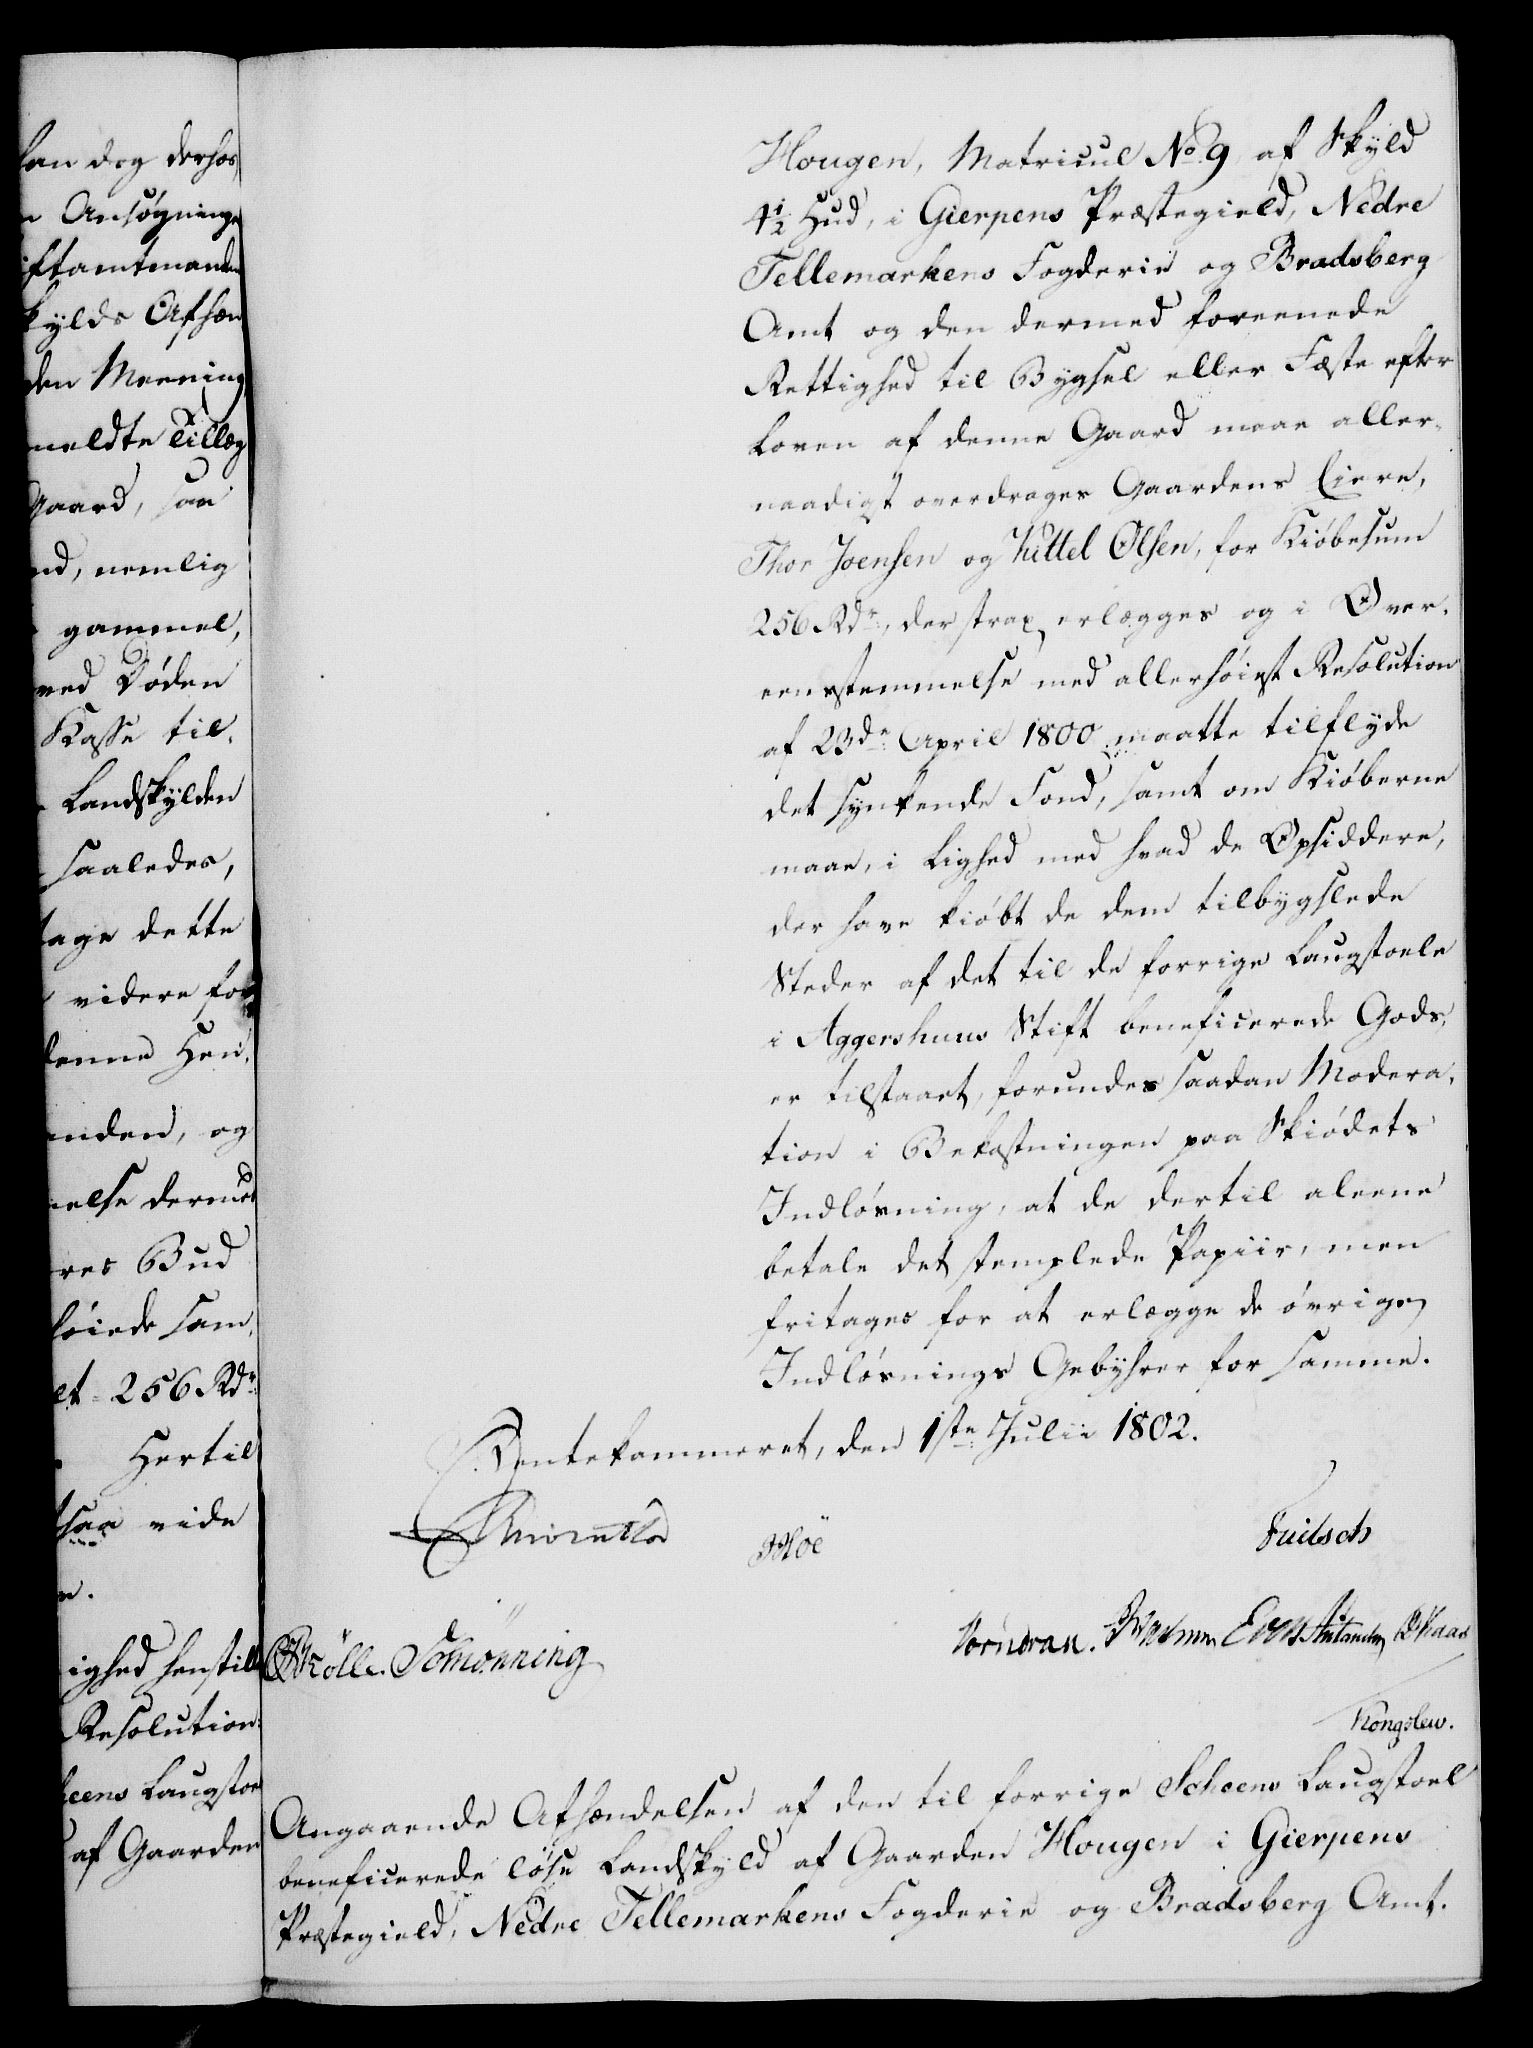 han dog derhos,
Ansøgninge
iftamtmanden
kylds Afhæn
den Meening
meldte Tillæg
Gaard, saa
nd, nemlig
gammel,
ved Døden
Kasse til.
Landskylden
saaledes,
tage dette
videre for
denne Hen.
anden, og
nelse dermed
res Bud
høiede sam.
let 256 Rdr.
Hertil
saa vide
n.
ighed henstill
Resolution:
Scheens Laugstoe
af Gaarden
Hougen, Matricul No. 9, af Skyld
4 1/2 Hud, i Gierpens Præstegield, Nedre
Tellemarkens Fogderie og Bradsberg
Amt og den dermed foreenede
Rettighed til Bygsel eller Fæste efter
Loven af denne Gaard maae aller-
naadigst overdrages Gaardens Eiere,
Thor Joensen og Kittel Olsen, for Kiøbesum
256 Rdr., der strax erlægges og i Over-
eensstemmelse med allerhøiest Resolution
af 23de April 1800 maatte tilflyde
det synkende Fond, samt om Kiøberne
maae, i Lighed med hvad de Opsiddere,
der have kiøbt de dem tilbygslede
Steder af det til de forrige Laugstoele
i Aggershuus Stift beneficerede Gods,
er tilstaaet, forundes saadan Modera-
tion i Bekostningen paa Skiødets
Indløsning, at de dertil aleene
betale det stemplede Papiir, men
fritages for at erlægge de øvrige
Indløsnings Gebyhrer for samme.
Rentekammeret, den 1ste Julii 1802.
Reventlow Moe Fuilsch
Mölle. Schiønning Vorndran. Skaar
Kongslew.
Angaaende Afhændelsen af den til forrige Scheens Laugstoel
beneficerede løse Landskyld af Gaarden Hougen i Gierpens
Præstegield, Nedre Tellemarkens Fogderie og Bradsberg Amt.